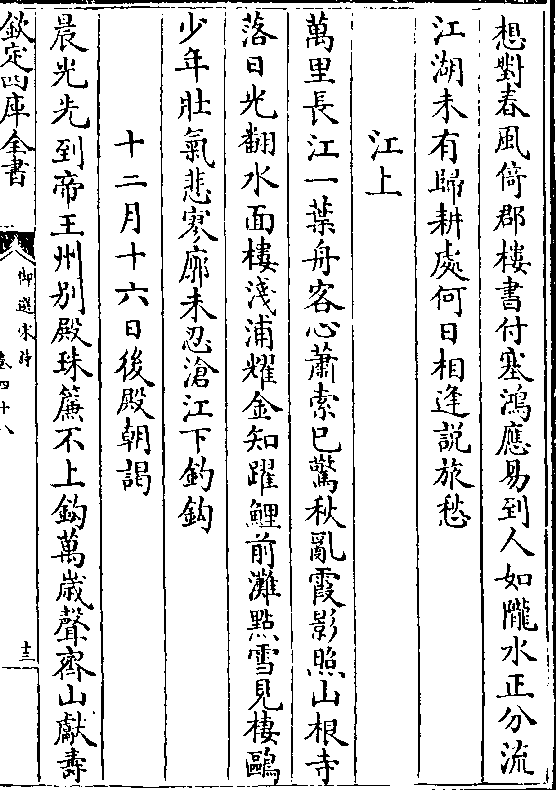 想對春風倚郡樓書付塞鴻應易到人如隴水正分流
江湖未有歸耕處何日相逢説旅愁
江上
萬里長江一葉舟客心蕭索已驚秋亂霞影照山根寺
落日光翻水面樓淺浦耀金知躍鯉前灘點雪見棲鷗
少年壯氣悲寥廓未忍滄江下釣鈎
十二月十六日後殿朝謁
晨光先到帝王州别殿珠簾不上鈎萬歲聲齊山獻壽
欽定四庫全書
御選宋詩
卷四十八
十三